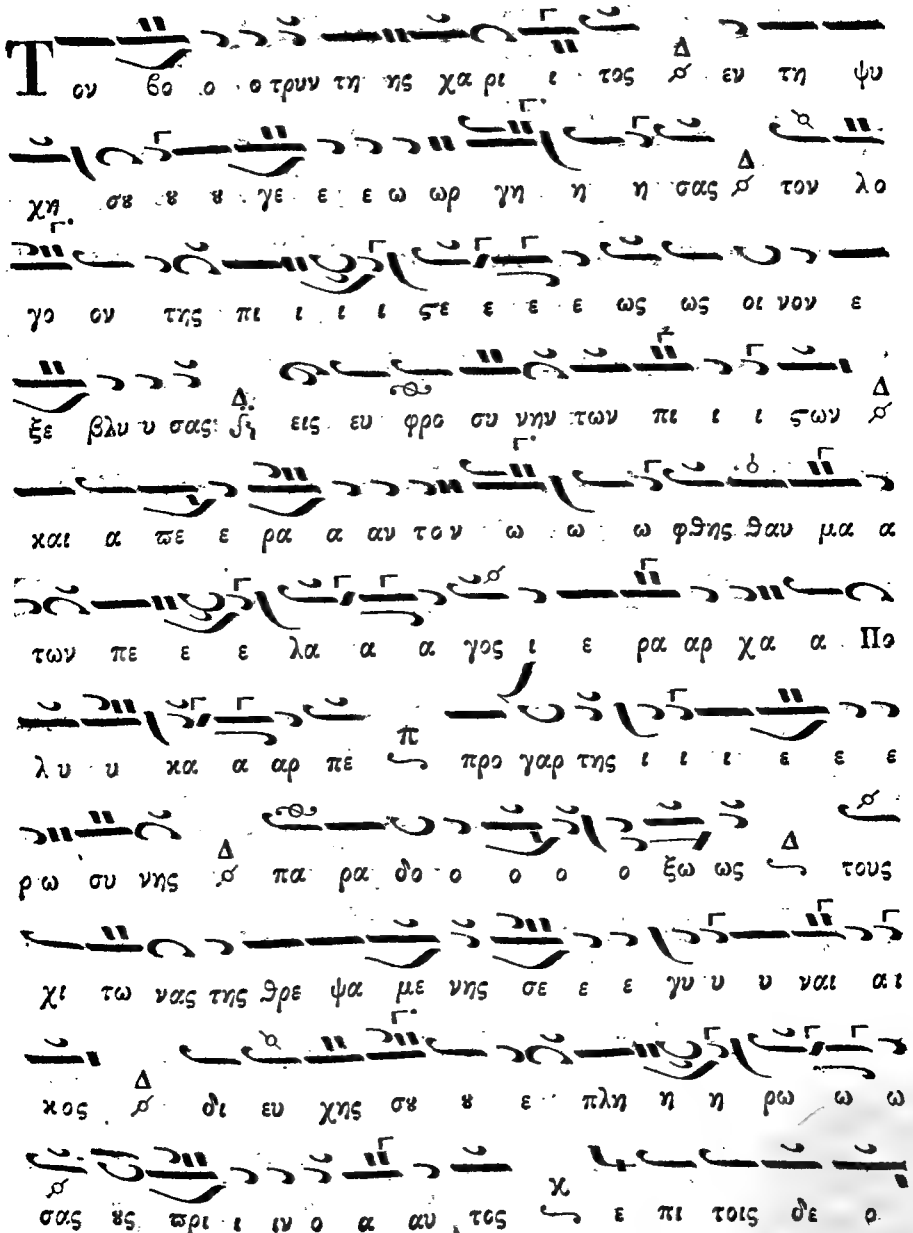 Τον βο ο ο τρυν τη ης χα ρι ι τος Δ εν τη ψυ
χη σȣ ȣ ȣ γε ε ε ω ωρ γη η η σας Δ τον λο
γο ον της πι ι ι ι ϛε ε ε ε ως ως οι νον ε
ξε βλυ υ σας Δ εις ευ φρο συ νην των πι ι ι ϛων Δ
και α ϖε ε ρα α αν τον ω ω ω φθης θαυ μα α
των πε ε ε λα α α γος ι ε ρα αρ χα α Πο
λυ υ κα α αρ πε π προ γαρ της ι ι ι ε ε ε
ρω συ νης Δ πα ρα δο ο ο ο ο ξω ως Δ τους
χι τω νας της θρε ψα με νης σε ε ε γυ υ υ ναι αι
κος Δ δι ευ χης σȣ ȣ ε πλη η η ρω ω ω
σας ȣς ϖρι ι ιν ο α αυ τος ϰ ε πι τοις δε ο